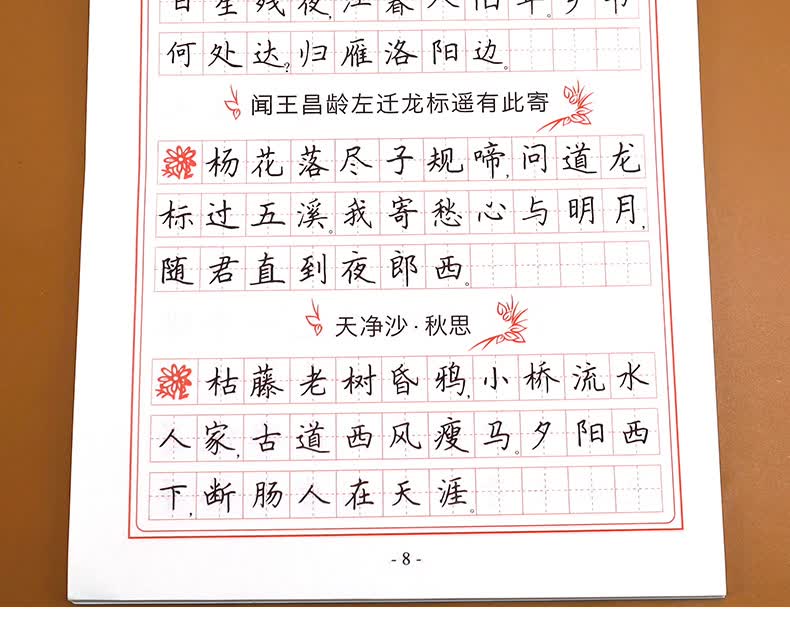 日生残夜,江春入旧年。乡书
何处达?归雁洛阳边。
闻王昌龄左迁龙标遥有此寄
杨花落尽子规啼,问道龙
标过五溪。我寄愁心与明月,
随君直到夜郎西。
天净沙·秋思
枯藤老树昏鸦,小桥流水
人家,古道西风瘦马。夕阳西
下,断肠人在天涯。
- 8 -